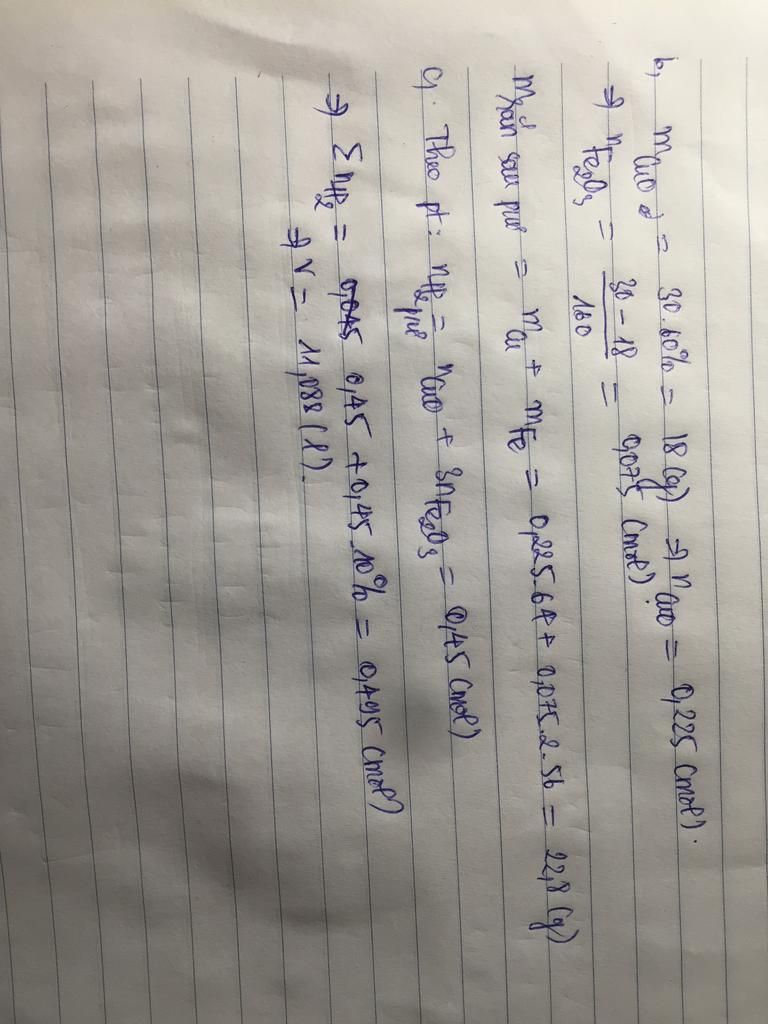 b, m CuO = 30.60% = 18 (g) => n CuO = 0,225 (mol).
=> n Fe2O3 = (30 - 18)/160 = 0,075 (mol).
m rắn sau pứ = m Cu + m Fe = 0,225.64 + 0,075.2.56 = 22,8 (g)
c, . Theo pt: n H2 pứ = n CuO + 3n Fe2O3 = 0,45 (mol)
=> Σ n H2 = 0,45 + 0,45.10% = 0,495 (mol)
=> V = 11,088 (l).